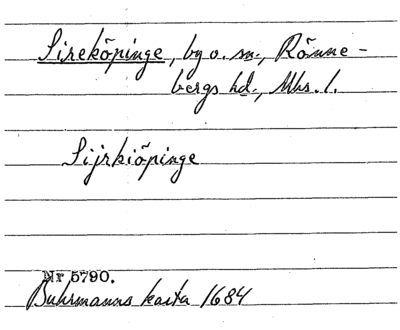 Sireköpinge, by o. sn., Rönne-
bergs hd., Mhs. l.
Sijrkiöpinge
Nr 5790.
Buhrmanns karta 1684